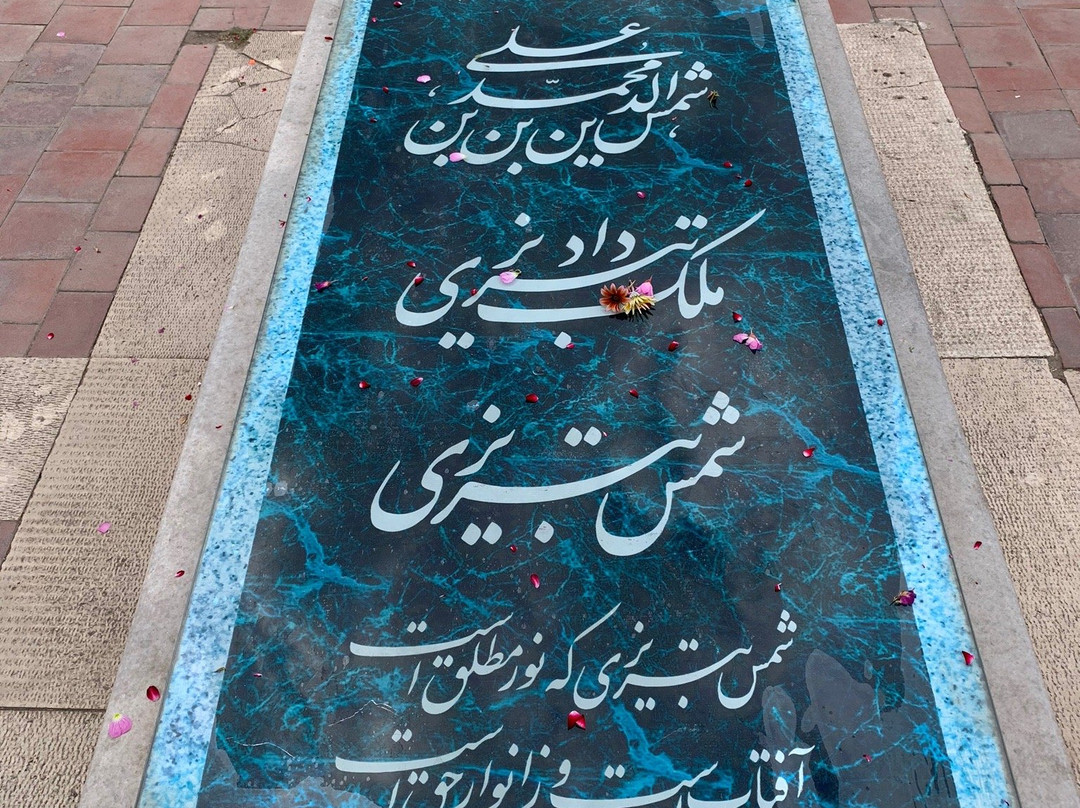 شمس الدین محمد بن علی بن
ملک داد تبریزی
شمس تبریزی
شمس تبریزی که نور مطلق است
آفتابست و ز انوار حق است